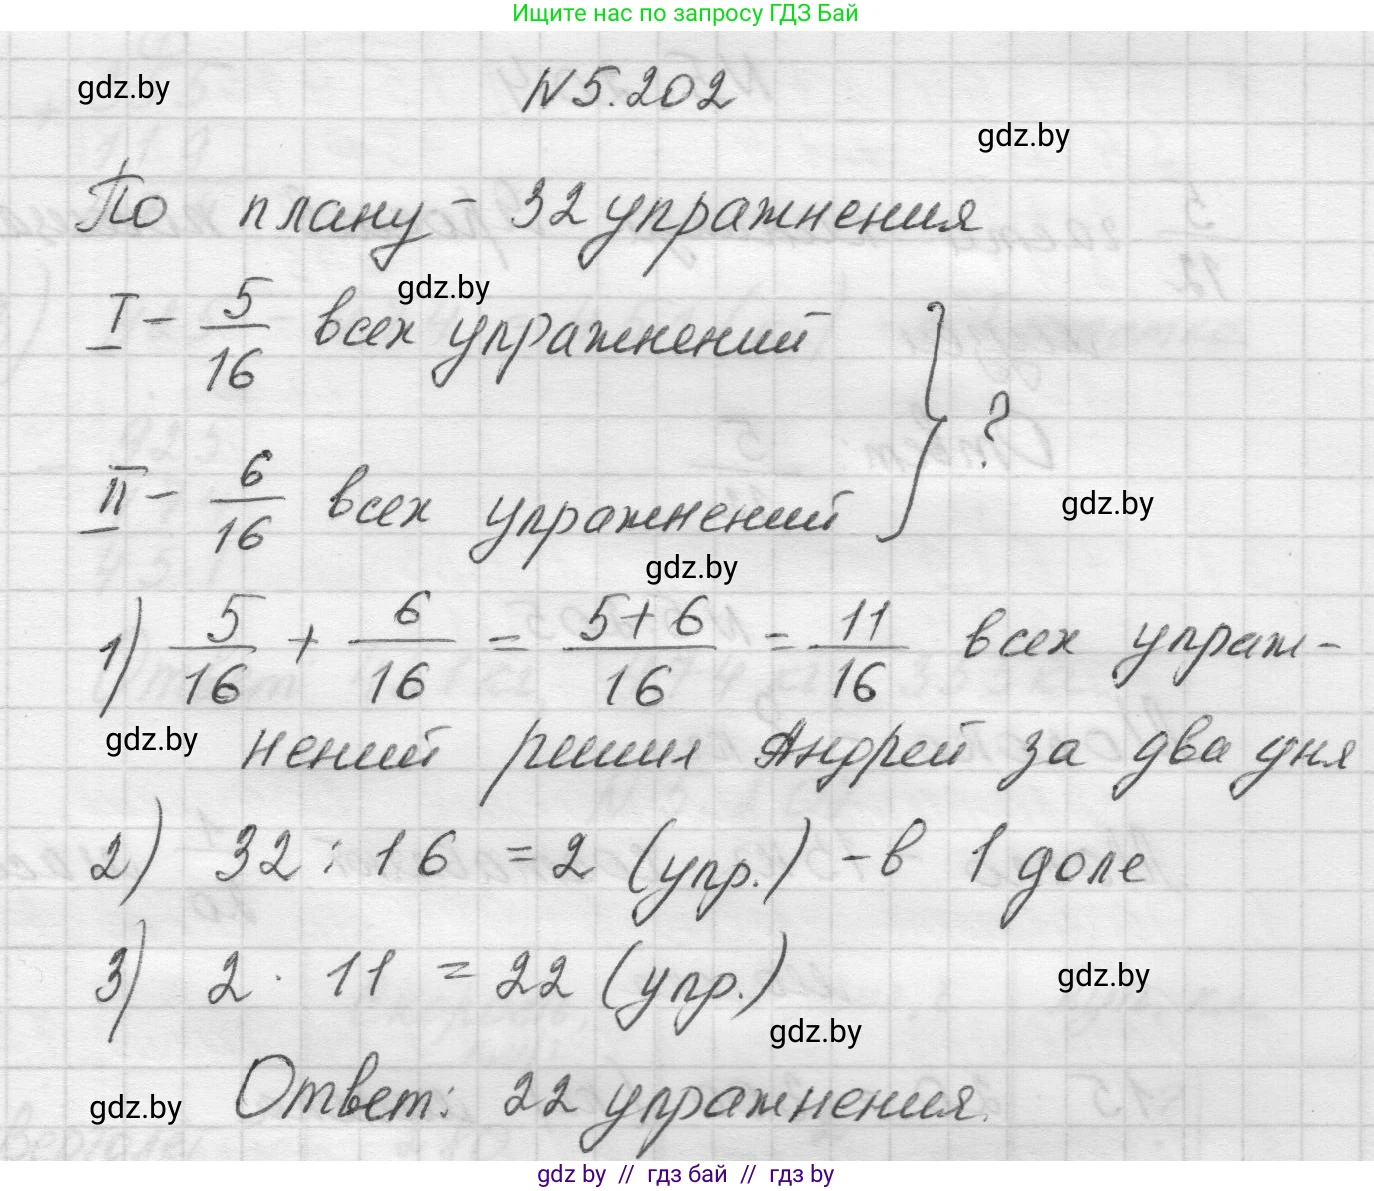 Ищите нас по запросу ГДЗ Бай
gdz.by
N5.202
gdz.by
По плану - 32 упражнения
gdz.by
I - 5/16 всех упражнений
} ?
II - 6/16 всех упражнений
gdz.by
gdz.by
1) 5/16 + 6/16 = 5+6/16 = 11/16 всех упраж-
gdz.by
нений решил Андрей за два дня
2) 32 : 16 = 2 (упр.) - в 1 доле
3) 2 · 11 = 22 (упр.)
gdz.by
gdz.by
gdz.by
Ответ: 22 упражнения.
gdz by // гдз бай // гдз by